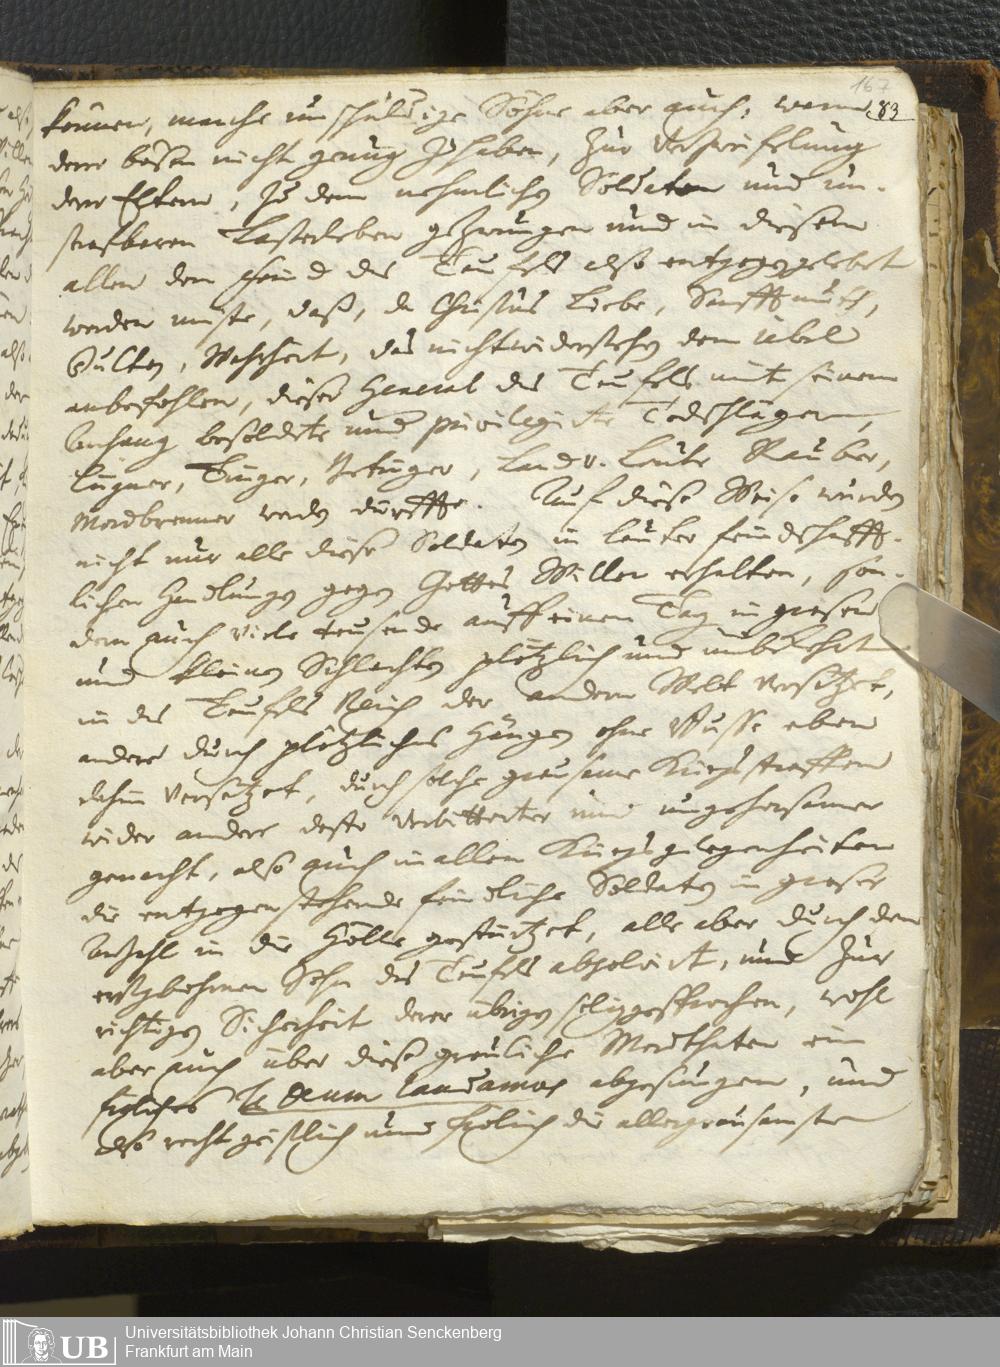 167
83
können, manche unschuldige Söhne aber auch, wenn
derer bösen nicht genug zu haben, zur Verzweiflung
derer Eltern, zu dem nehmlichen Soldaten und un-
strafbaren Lasterleben gezwungen und in diesem
allen dem Feind des Teufels also entgegen gelebet
werden müste, daß, da Christus Liebe, Sanfftmuth,
Dulten, Wahrheit, das nicht widerstehen dem übel
anbefohlen, dieser General des Teufels mit seinem
Anhang besoldete und privilegirte Todschläger,
Lügner, Betrüger, Land u. Leute Räuber,
Mordbrenner werden dürffte. Auf diese Weise würden
nicht nur alle diese Soldaten in lauter feindschafft-
lichen Handlungen gegen Gottes Willen erhalten, son-
dern auch viele tausende auff einen Tag in grosen
und kleinen Schlachten plötzlich und unbekehrt
in des Teufels Reich der andern Welt versetzet,
andere durch plötzliches Hängen ohne Busse eben
dahin versetzet, durch solche grausame Kriegsstraffen
wider andere desto verbitterter und ungehorsamer
gemacht, also auch in allen Kriegsgelegenheiten
die entgegen stehende feindliche Soldaten in groser
Anzahl in die Hölle gestürtzet, alle aber durch den
Sohn des Teufels absolvirt, und zur
richtigen Sicherheit derer übrigen seliggesprochen, wohl
aber auch über diese greuliche Mordthaten ein
Te Deum laudamus abgesungen, und
also recht geistlich und frölich die allergrausamsten
UB
Universitätsbibliothek Johann Christian Senckenberg
Frankfurt am Main